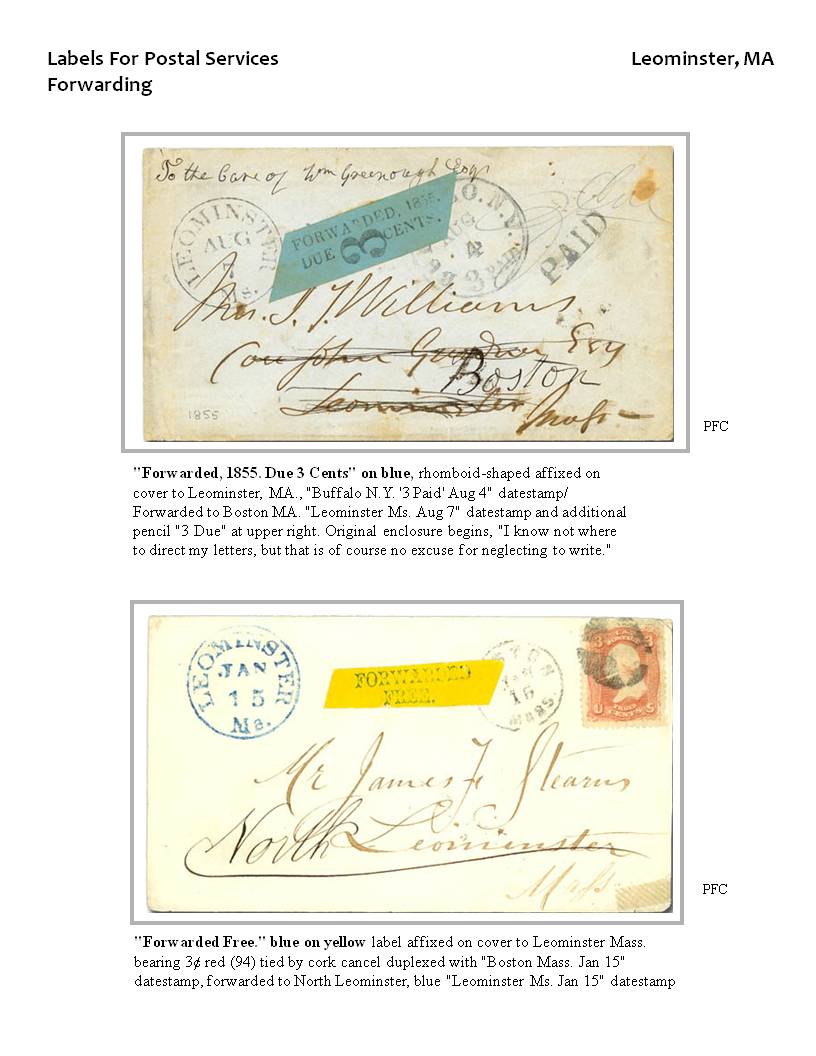 Labels For Postal Services
Leominster, MA
Forwarding
To the Care of Wm Greenough Esqr
LEOMINSTER
AUG
7
Ms.
FORWARDED, 1855.
DUE 3 CENTS.
O. N.Y.
AUG
4
3 PAID
Due
PAID
Mrs. J. T. Williams
Care John Esq
Boston
Leominster
Mass
1855
PFC
"Forwarded, 1855. Due 3 Cents" on blue, rhomboid-shaped affixed on
cover to Leominster, MA., "Buffalo N.Y. '3 Paid' Aug 4" datestamp/
Forwarded to Boston MA. "Leominster Ms. Aug 7" datestamp and additional
pencil "3 Due" at upper right. Original enclosure begins, "I know not where
to direct my letters, but that is of course no excuse for neglecting to write."
LEOMINSTER
JAN
15
Ms.
FORWARDED
FREE.
STON
JAN
15
MASS
U THREE CENTS S
Mr James F Stearns
North Leominster
Mass
PFC
"Forwarded Free." blue on yellow label affixed on cover to Leominster Mass.
bearing 3¢ red (94) tied by cork cancel duplexed with "Boston Mass. Jan 15"
datestamp, forwarded to North Leominster, blue "Leominster Ms. Jan 15" datestamp